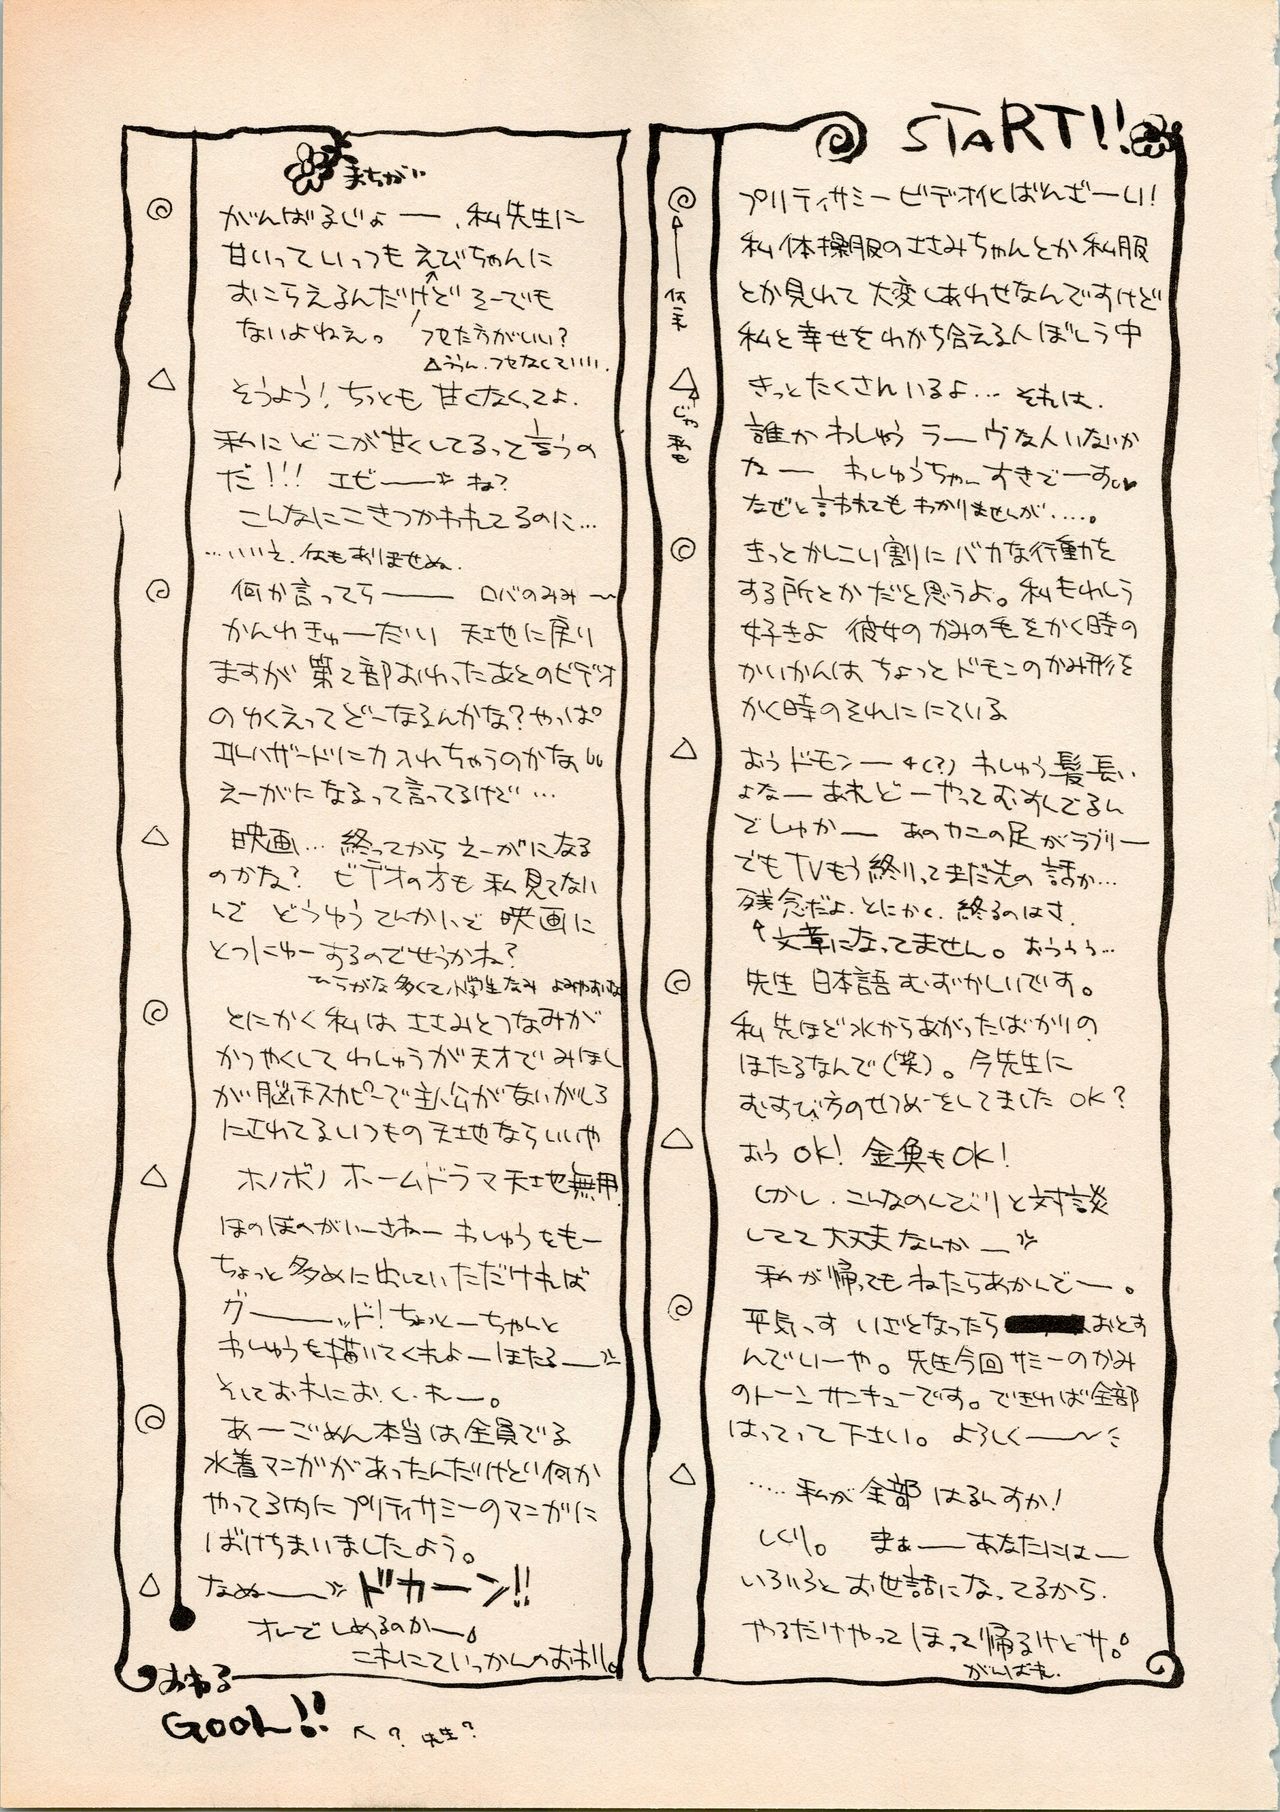 START!!
プリティサミー ビデオ化とばんざーい!
私 体操服のささみちゃんとか 私服
とか見れて 大変しあわせなんですけど
私と幸せをわかち合える人ぼしう中
きっとたくさんいるよ… それは、
誰か わしゅう ラーヴな人いないか
なー わしゅうちゃーんすきでーす♥
なぜと言われてもわかりませんが……。
きっとかしこい割に バカな行動を
する所とかだと思うよ。私もわしう
好きよ 彼女の かみの毛をかく時の
かいかんは ちょっとドモンのかみ形を
かく時のそれににている
おうドモンー (?) わしゅう髪長い
よなー あれどーやってむすんでるん
でしゅかー あのカニの足がラブリー
でもTVもう終りってまだ先の話か…
残念だよ、とにかく、終るのはさ、
↑文章になってません。おううぅ…
先生 日本語むずかしいです。
私先ほど水からあがったばかりの
ほたるなんで(笑)。今先生に
むすび方のせつめーをしてました OK?
おう OK! 金魚もOK!
しかし、こんなのんびりと対談
してて大丈夫なんかー
私が帰ってもねたらあかんでー。
平気っす いざとなったら おとす
んでいーや。先生今回サミーのかみ
のトーン サンキューです。できれば全部
はってって下さい。よろしくー〜
……私が全部はるんすか!
しくり。 まぁーあなたにはー
いろいろとお世話になってるから、
やるだけやってほって帰るけどサ。
がんばれ、
◎
↑
△
じゃ
私
◎
△
◎
△
◎
△
まちがい
がんばるじょー、私先生に
甘いっていっつもえびちゃんに
おこらえるんだけどそーでも
ないよねぇ。 フセた方がいい?
△ううん、フセなくていい。
そうよう!ちっとも甘くなくってよ、
私にどこが甘くしてるって言うの
だ!!! エビーー ね?
こんなにこきつかわれてるのに…
…いいえ、何もありませぬ、
何か言ってらーー ロバのみみ〜
かんわきゅーだい 天地に戻り
ますが 第2部おわったあとのビデオ
のゆくえってどーなるんかな?やっぱ
エルハザードに力入れちゃうのかなぁ
えーがになるって言ってるけど…
映画…終ってから えーがになる
のかな? ビデオの方も私見てない
んで どうゆうてんかいで 映画に
とつにゅーするのでせうかね?
ひらがな多くて小学生なみ よみやすいな
とにかく私は ささみとつなみが
かつやくして わしゅうが天才でみほし
が脳天スカピーで主人公がないがしろ
にされてるいつもの天地ならいいや
ホノボノ ホームドラマ 天地無用
ほのぼのがいーさねー わしゅうをもー
ちょっと多めに出していただければ
グーーッド!ちょっとーちゃんと
わしゅうを描いてくれよーほたるー
そしておれにおくれー。
あーごめん本当は全員でる
水着マンガがあったんだけどい何か
やってる内にプリティサミーのマンガに
ばけちまいましたよう。
なぬーー ドカーン!!
オレでしめるのかー。
これにていっかんのおわり。
◎
△
◎
△
◎
△
◎
△
おわる
GooL!!
↖?先生?